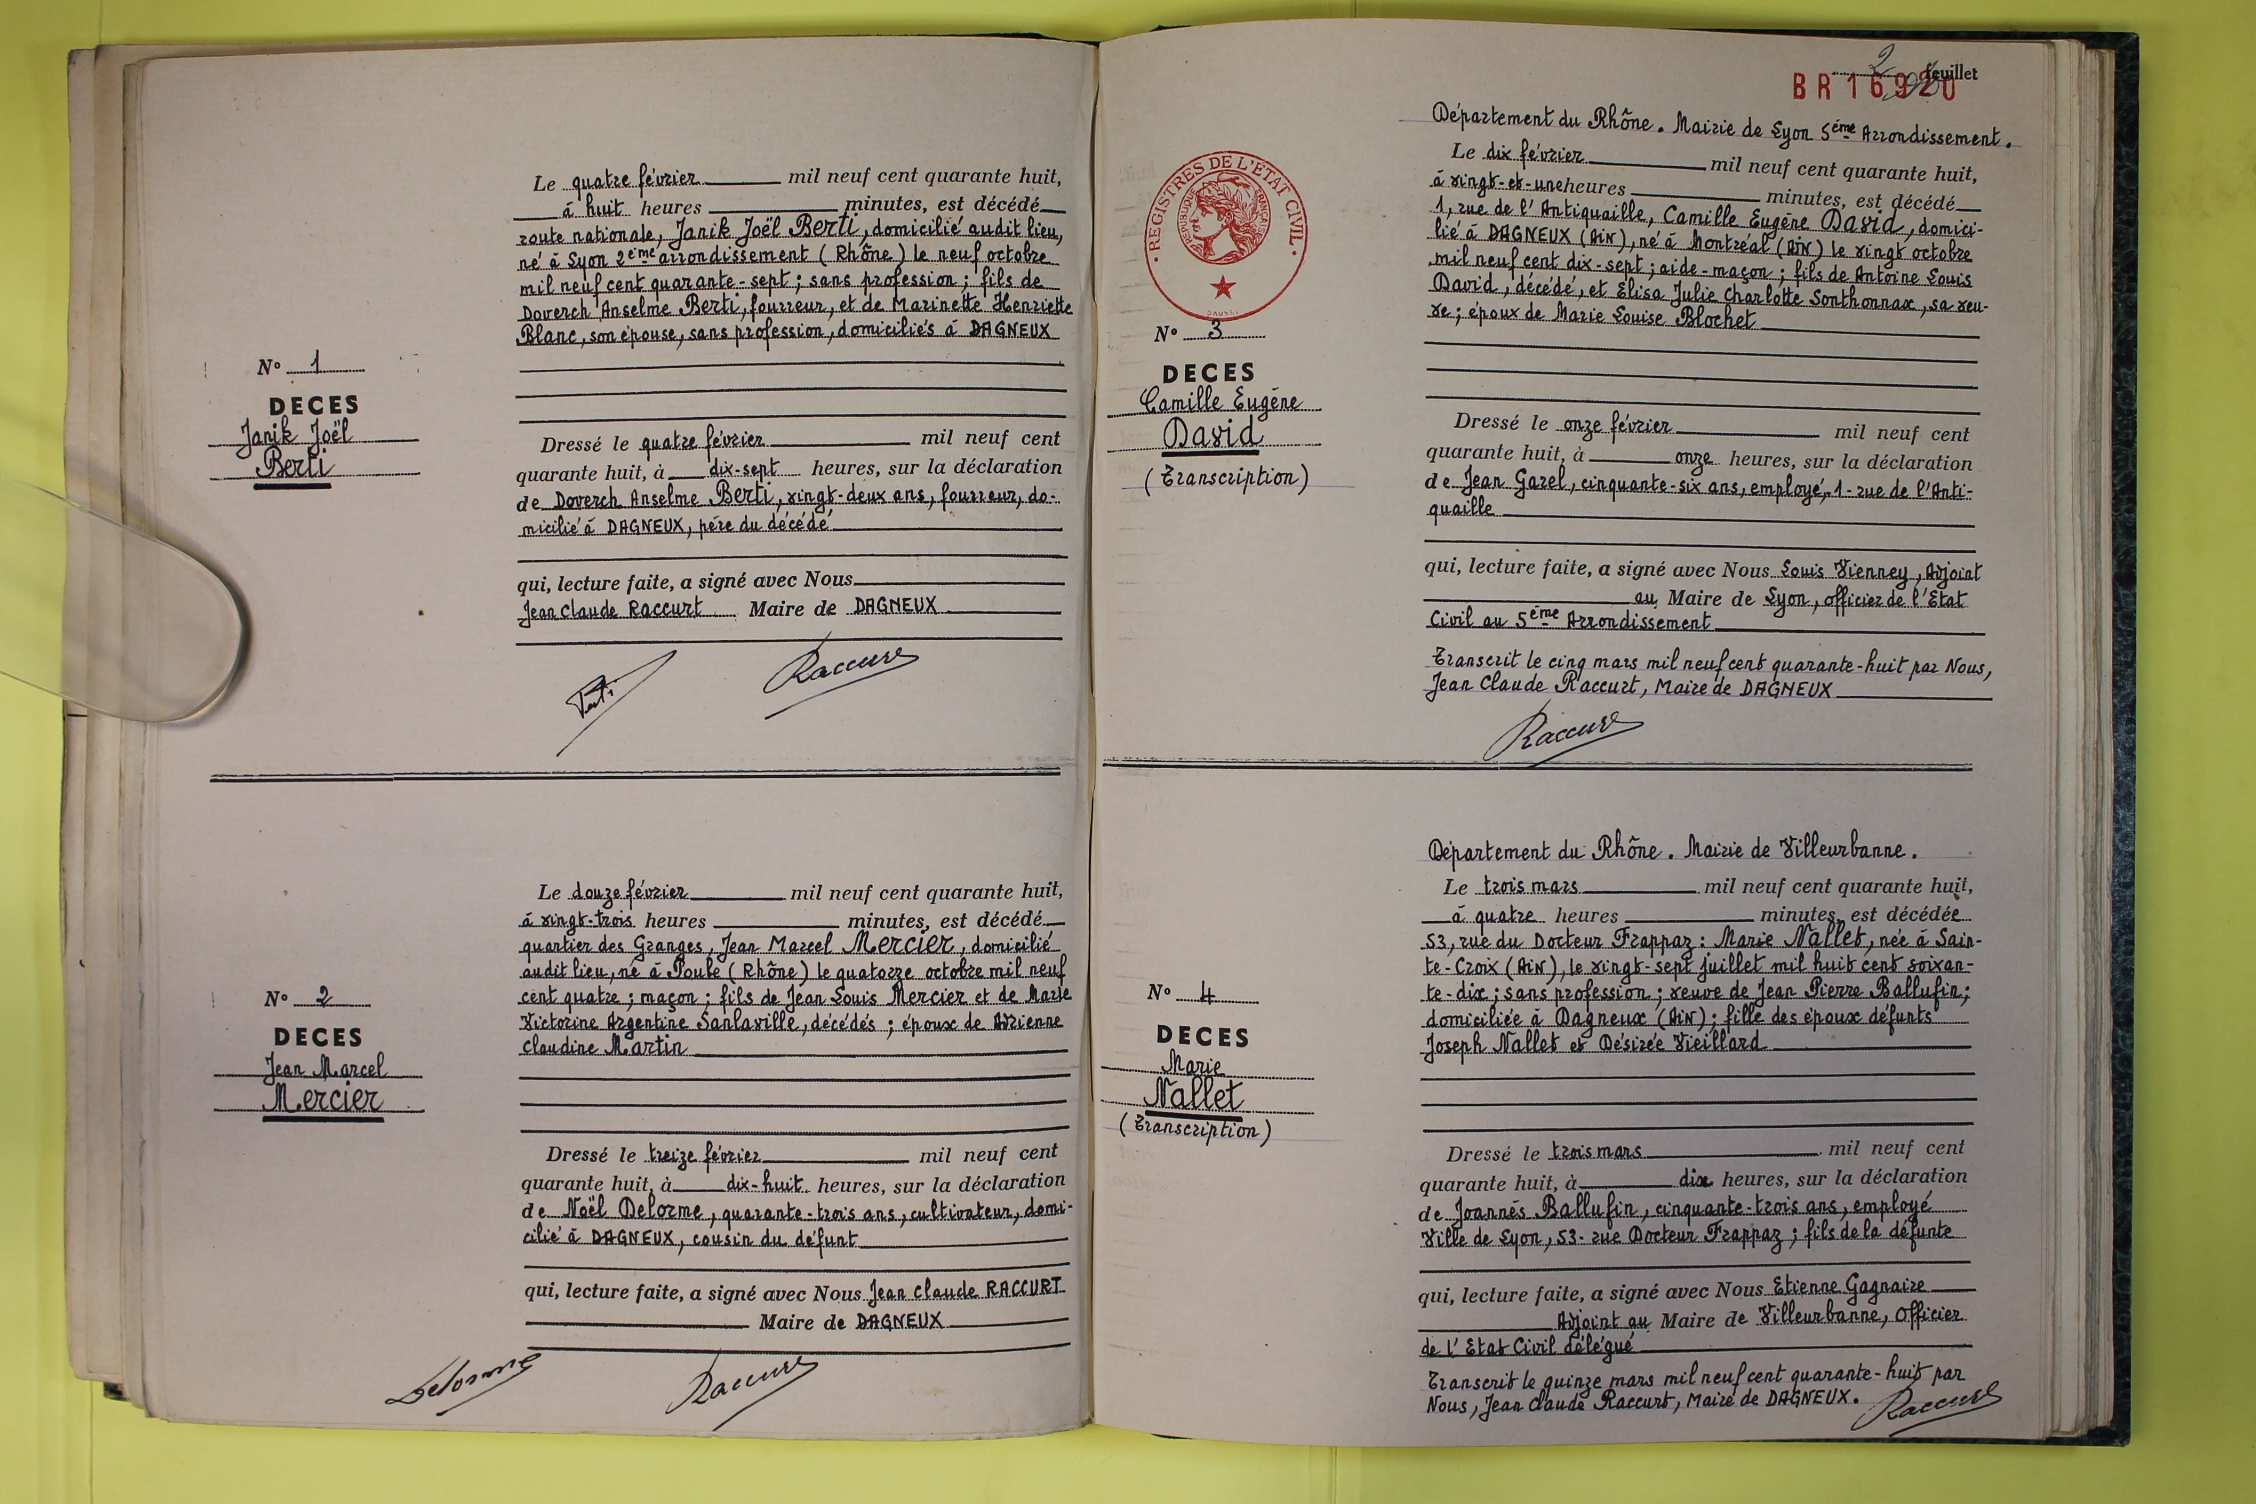 Le quatre février mil neuf cent quarante huit,
à huit heures minutes, est décédé
route nationale, Janik Joël Berti, domicilié audit lieu,
né à Lyon 2ème arrondissement (Rhône) le neuf octobre
mil neuf cent quarante-sept; sans profession; fils de
Doverch Anselme Berti, fourreur, et de Marinette Henriette
Blanc, son épouse, sans profession, domiciliés à DAGNEUX
N° 1
DECES
Janik Joël
Berti
Dressé le quatre février mil neuf cent
quarante huit, à dix-sept heures, sur la déclaration
de Doverch Anselme Berti, vingt-deux ans, fourreur, do-
micilié à DAGNEUX, père du décédé
qui, lecture faite, a signé avec Nous
Jean Claude Raccurt Maire de DAGNEUX
Berti Raccurt
Le douze février mil neuf cent quarante huit,
à vingt-trois heures minutes, est décédé
quartier des Granges, Jean Marcel Mercier, domicilié
audit lieu, né à Poule (Rhône) le quatorze octobre mil neuf
cent quatre; maçon; fils de Jean Louis Mercier et de Marie
Victorine Argentine Sanlaville, décédés; époux de Adrienne
Claudine Martin
N° 2
DECES
Jean Marcel
Mercier
Dressé le treize février mil neuf cent
quarante huit, à dix-huit heures, sur la déclaration
de Noël Delorme, quarante-trois ans, cultivateur, domi-
cilié à DAGNEUX, cousin du défunt
qui, lecture faite, a signé avec Nous Jean Claude RACCURT
Maire de DAGNEUX
Delorme Raccurt
2 feuillet
BR16920
Département du Rhône. Mairie de Lyon 5ème Arrondissement.
Le dix février mil neuf cent quarante huit,
à vingt-et-une heures minutes, est décédé
1, rue de l'Antiquaille, Camille Eugène David, domici-
lié à DAGNEUX (AIN), né à Montréal (AIN) le vingt octobre
mil neuf cent dix-sept; aide-maçon; fils de Antoine Louis
David, décédé, et Elisa Julie Charlotte Sonthonnax, sa veu-
ve; époux de Marie Louise Blochet
REGISTRES DE L'ÉTAT CIVIL
RÉPUBLIQUE FRANÇAISE
N° 3
DECES
Camille Eugène
David
(Transcription)
Dressé le onze février mil neuf cent
quarante huit, à onze heures, sur la déclaration
de Jean Garel, cinquante-six ans, employé, 1- rue de l'Anti-
quaille
qui, lecture faite, a signé avec Nous Louis Vienney, Adjoint
au Maire de Lyon, officier de l'Etat
Civil au 5ème Arrondissement
Transcrit le cinq mars mil neuf cent quarante-huit par Nous,
Jean Claude Raccurt, Maire de DAGNEUX
Raccurt
Département du Rhône. Mairie de Villeurbanne.
Le trois mars mil neuf cent quarante huit,
à quatre heures minutes, est décédée
53, rue du Docteur Frappaz: Marie Nallet, née à Sain-
te-Croix (AIN), le vingt-sept juillet mil huit cent soixan-
te-dix; sans profession; veuve de Jean Pierre Ballufin;
domiciliée à Dagneux (AIN); fille des époux défunts
Joseph Nallet et Désirée Vieillard
N° 4
DECES
Marie
Nallet
(Transcription)
Dressé le trois mars mil neuf cent
quarante huit, à dix heures, sur la déclaration
de Joannès Ballufin, cinquante-trois ans, employé
Ville de Lyon, 53- rue Docteur Frappaz; fils de la défunte
qui, lecture faite, a signé avec Nous Etienne Gagnaire
Adjoint au Maire de Villeurbanne, Officier
de l'Etat Civil délégué
Transcrit le quinze mars mil neuf cent quarante-huit par
Nous, Jean Claude Raccurt, Maire de DAGNEUX.
Raccurt